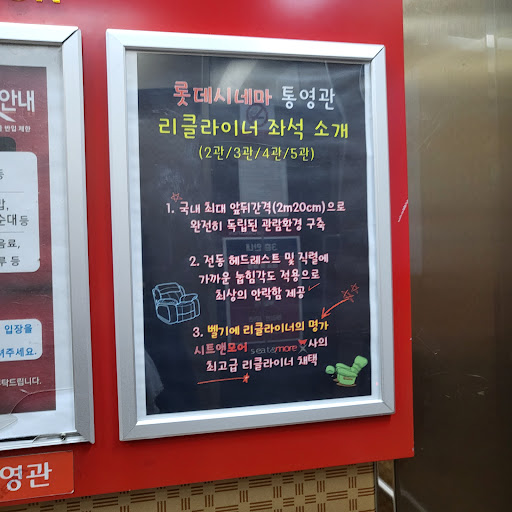 안내
반입 제한
순대 등
음료,
루 등
입장을
려주세요.
부탁드립니다.
영관
롯데시네마 통영관
리클라이너 좌석 소개
(2관/3관/4관/5관)
1. 국내 최대 앞뒤간격(2m20cm)으로
완전히 독립된 관람환경 구축
2. 전동 헤드레스트 및 직렬에
가까운 눕힘각도 적용으로
최상의 안락함 제공
3. 벨기에 리클라이너의 명가
시트앤모어 seatsmore 사의
최고급 리클라이너 채택